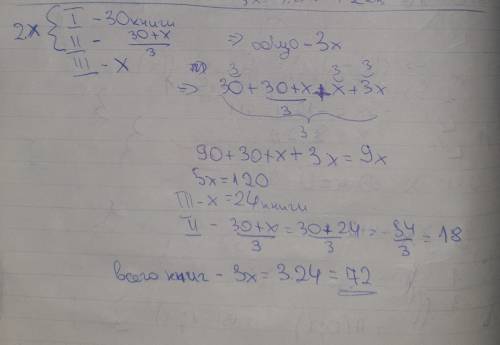 2x { I - 30 книги
II - (30+x)/3 => общо - 3x
III - x
=> 30 + (30+x)/3 + x + 3x
3x
90+30+x+3x=9x
5x=120
III - x = 24 книги
II - (30+x)/3 = (30+24)/3 = 54/3 = 18
всего книг - 3x = 3.24 = 72